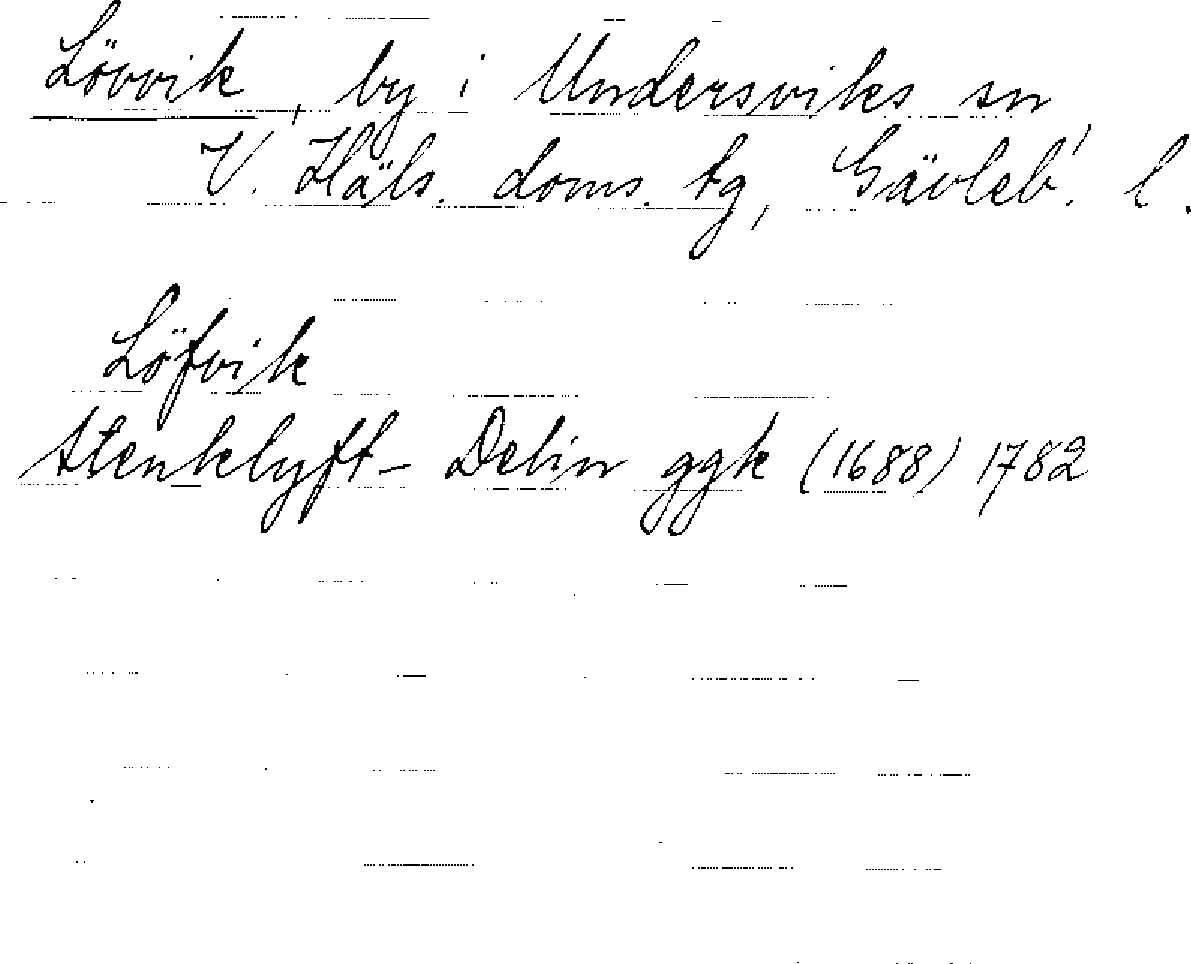 Lövvik, by i Undersviks sn
V. Häls. doms. tg, Gävleb. l.
Löfvik
Stenklyft- Delin ggk (1688) 1782